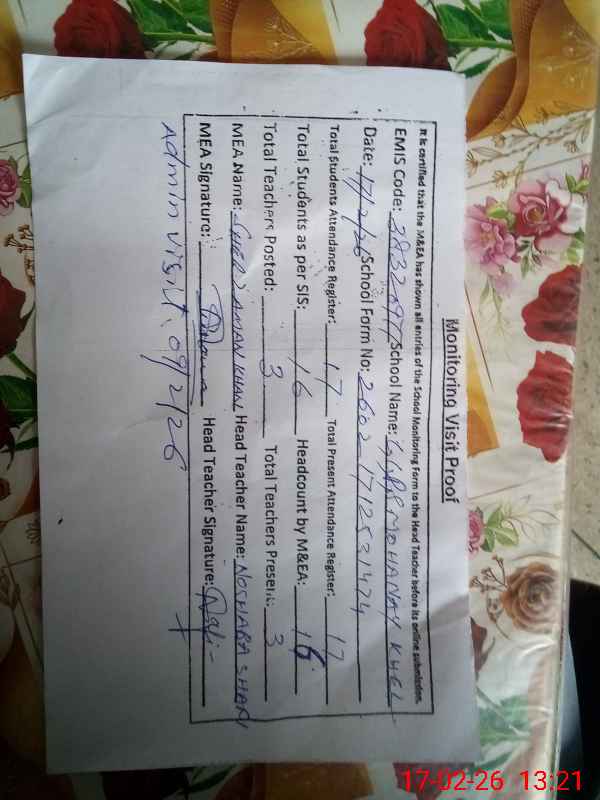 Monitoring Visit Proof
It is certified that the M&EA has shown all entries of the School Monitoring Form to the Head Teacher before its online submission.
EMIS Code: School Name: GGPS MOHANAY KHEL
Date: 17/2/26 School Form No: 2602-1712531474
Total Students Attendance Register: 17 Total Present Attendance Register: 17
Total Students as per SIS: 16 Headcount by M&EA: 16
Total Teachers Posted: 3 Total Teachers Present: 3
MEA Name: SHER ZAMAN KHAN Head Teacher Name: NOSHABA SHAH
MEA Signature: Head Teacher Signature:
Admin visit. 09/2/26
17-02-26 13:21